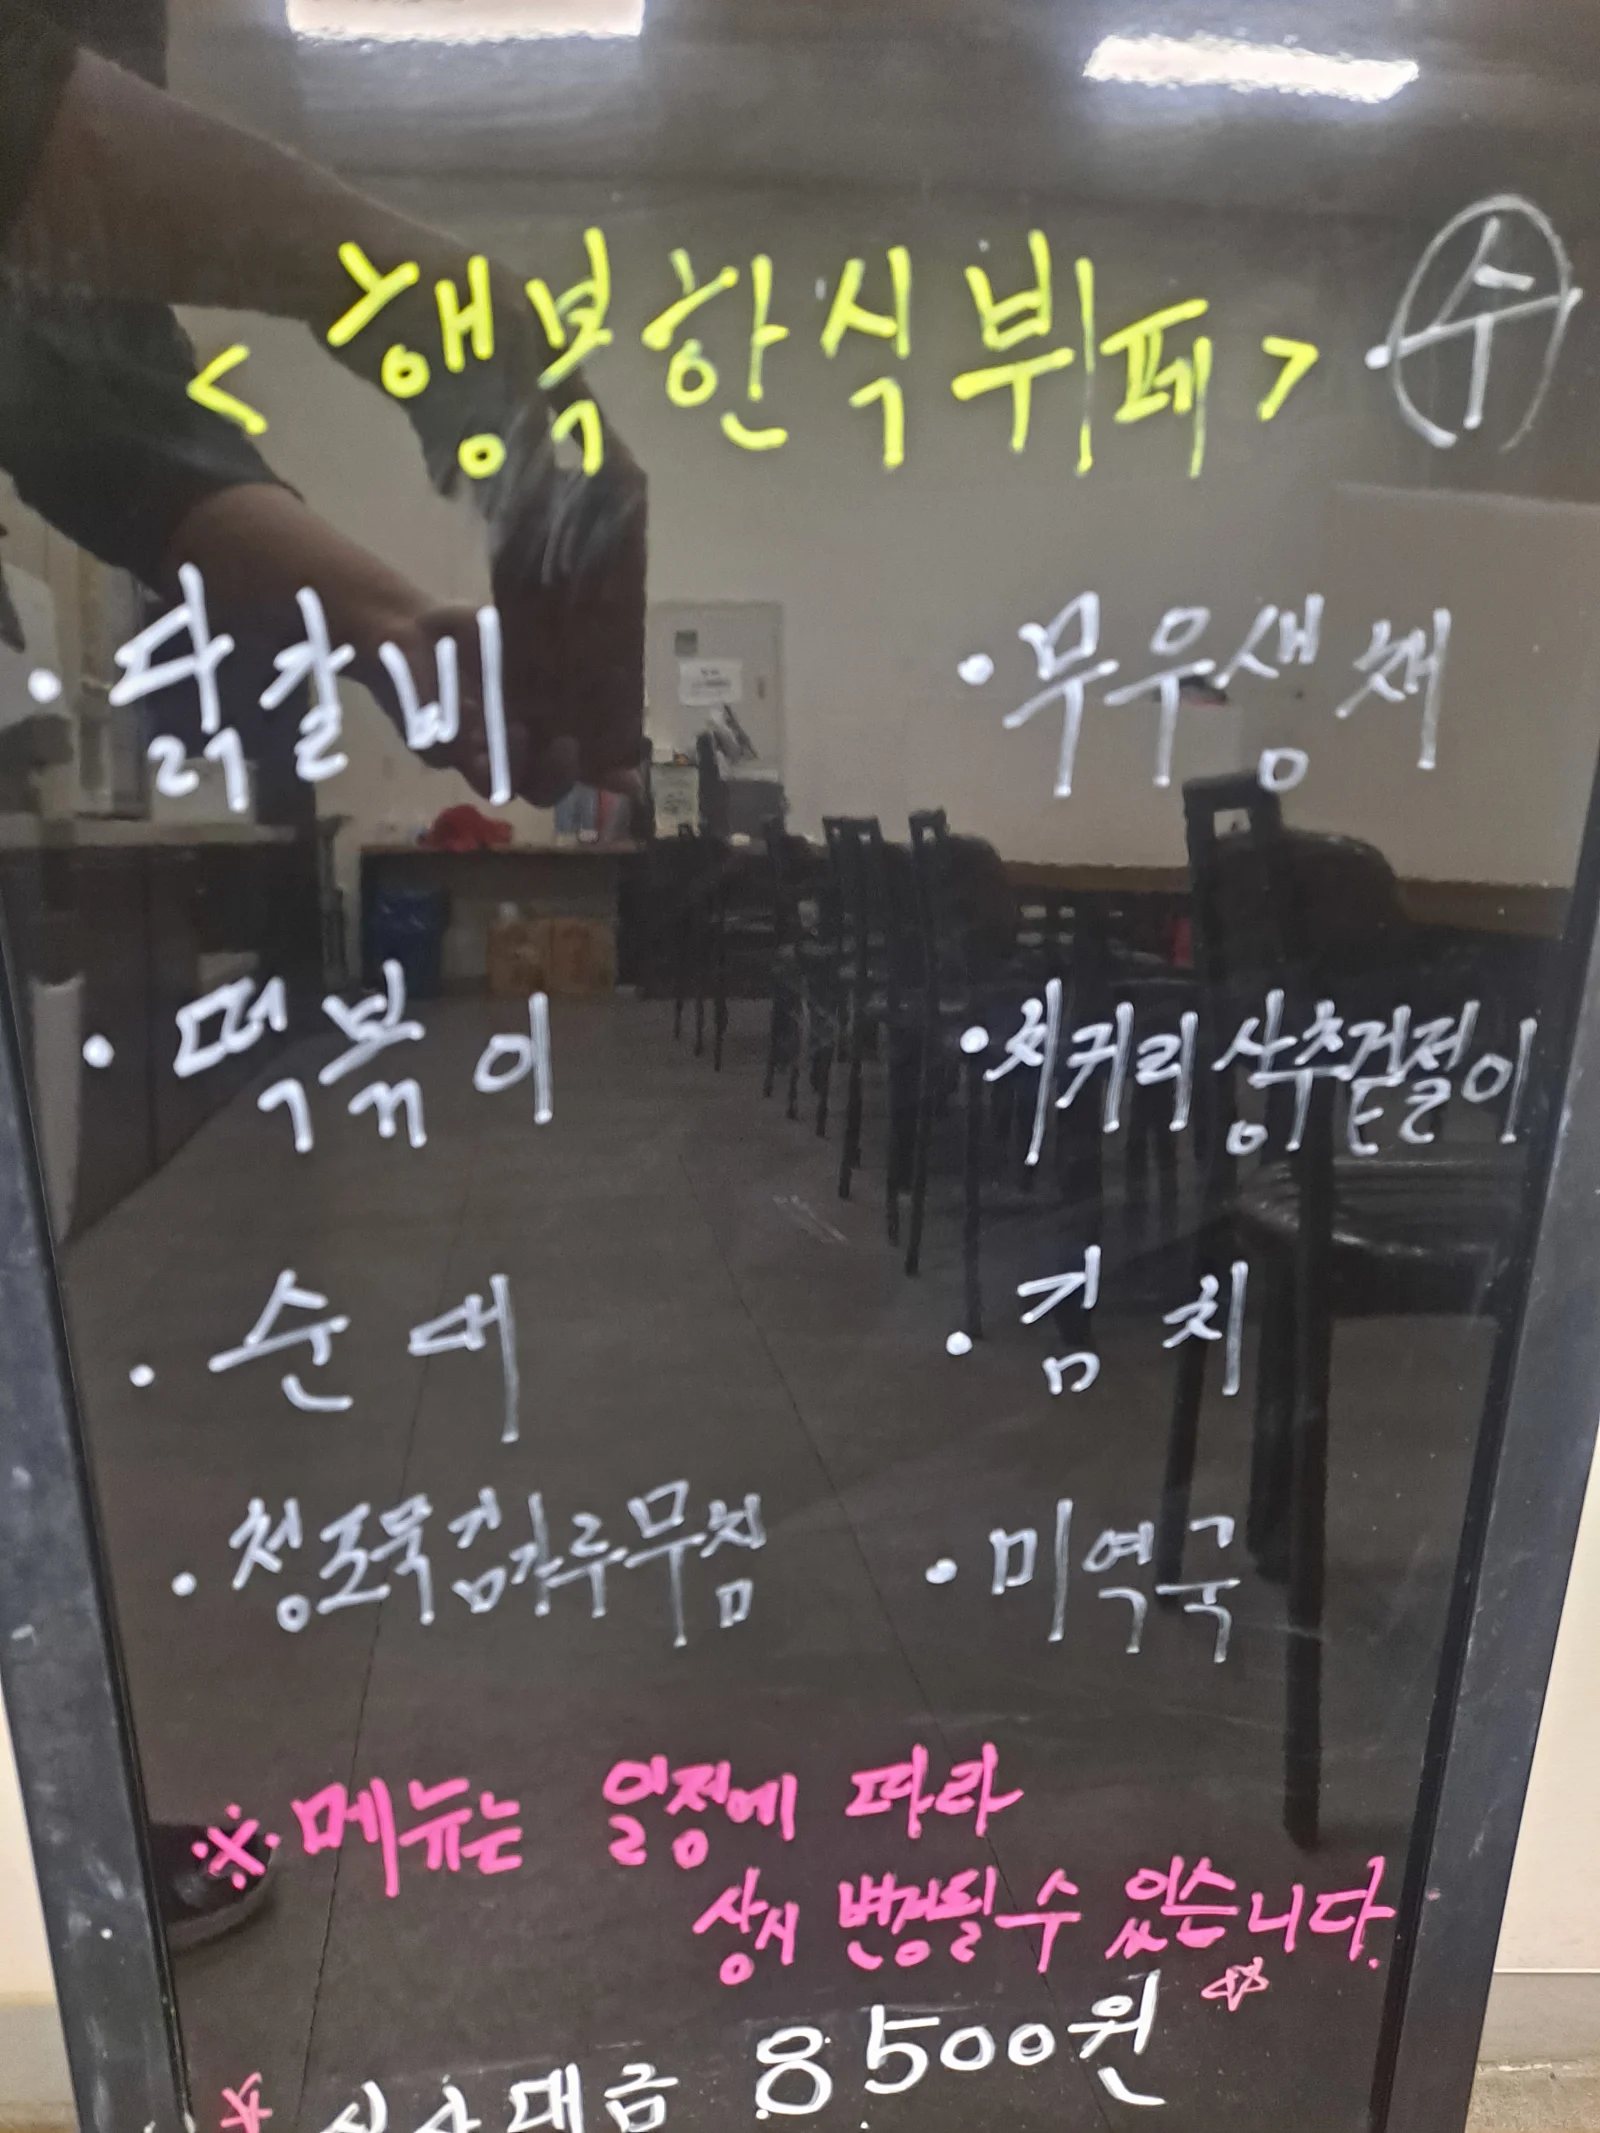 <행복한식뷔페> ·수
· 닭갈비
· 떡볶이
· 순대
· 청포묵김가루무침
· 무우생채
· 치커리상추겉절이
· 김치
· 미역국
※메뉴는 일정에 따라
상시 변경될 수 있습니다.
☆
* 식사대금 8500원